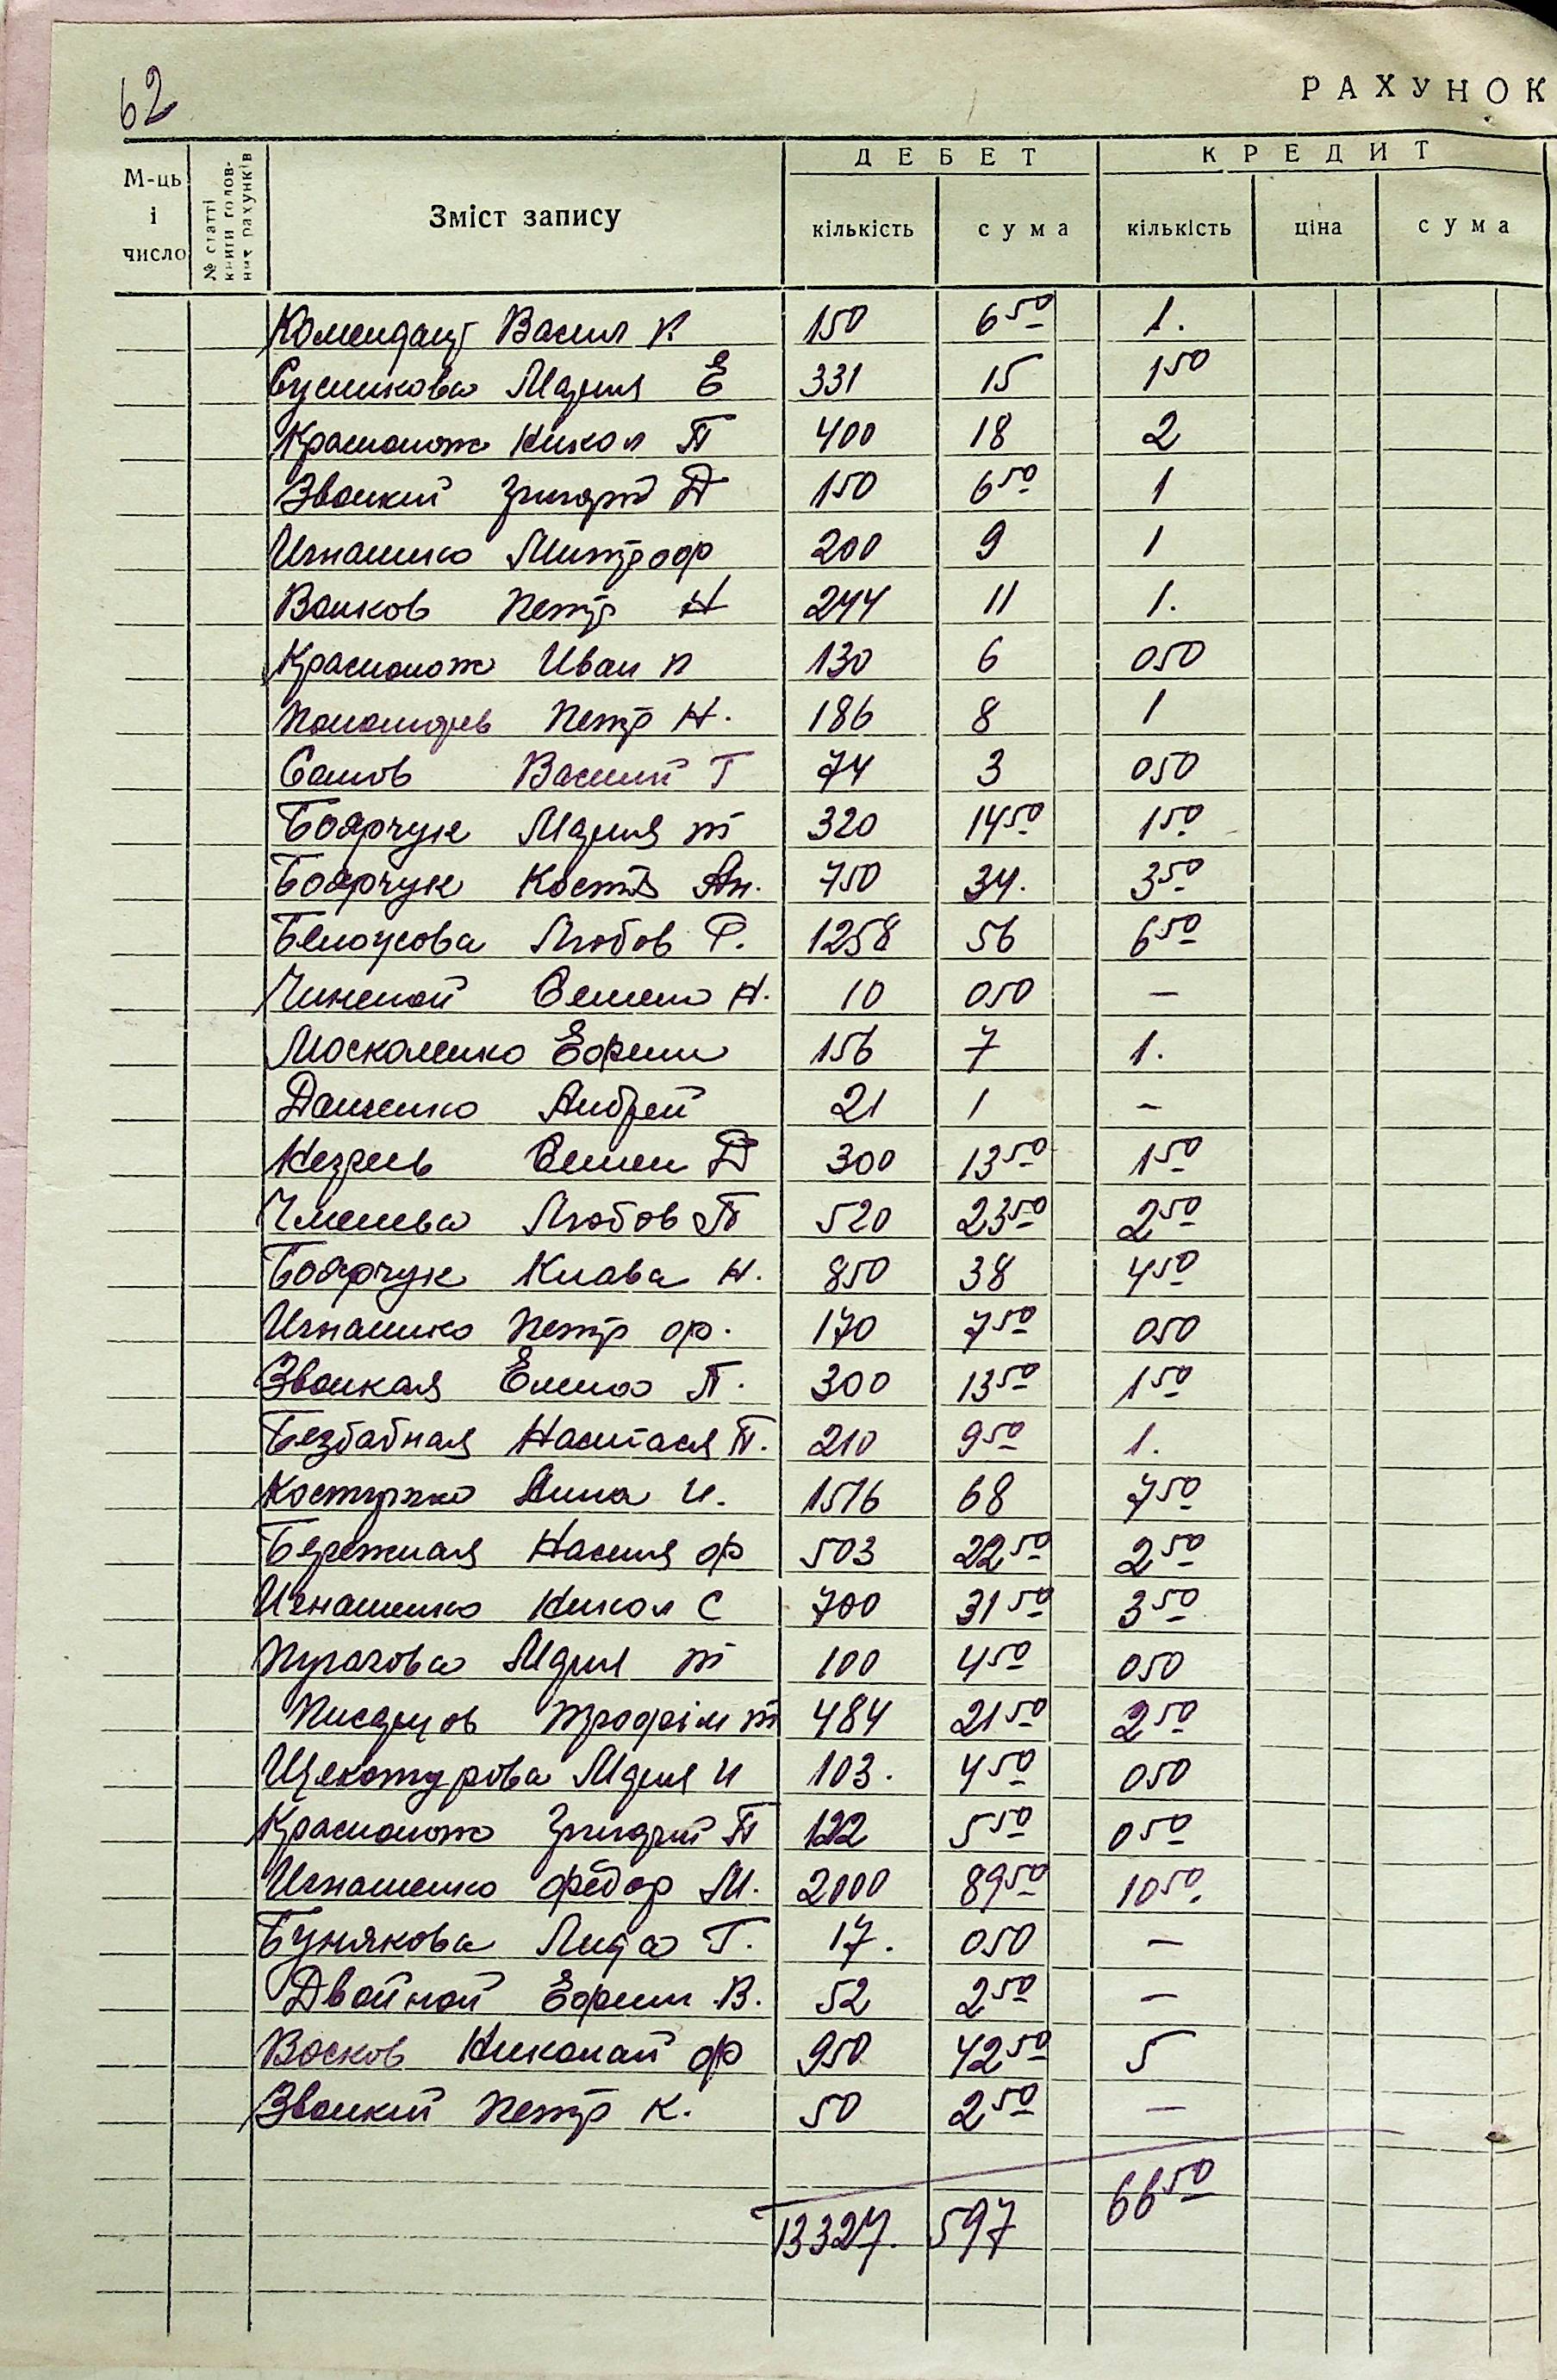 62
РАХУНОК
М-ць і число № статті книги голов- них рахунків Зміст запису ДЕБЕТ КРЕДИТ
кількість сума кількість ціна сума
Комендант Васил К 150 6 50 1.
Сушикова Мария Е 331 15 1 50
Красонож Никол П 400 18 2
Звонкий Григорий Д 150 6 50 1
Игнашко Митроф 200 9 1
Волков Петр Н 244 11 1.
Красонож Иван П 130 6 0 50
Пономарев Петр Н. 186 8 1
Сомов Василий Г 74 3 0 50
Боярчук Мария т 320 14 50 1 50
Боярчук Костя Ан. 750 34. 3 50
Белоусова Любов Р. 1258 56 6 50
Семен Н. 10 0 50 —
Москаленко Ефим 156 7 1.
Данченко Андрей 21 1 —
Семен Д 300 13 50 1 50
Любов П 520 23 50 2 50
Боярчук Клава Н. 850 38 4 50
Игнашко Петр ф. 170 7 50 0 50
Звонкая Елена П. 300 13 50 1 50
Безбабная Настася П. 210 9 50 1.
Анна И. 1516 68 7 50
Бережная Настя ф 503 22 50 2 50
Игнашенко Никол С 700 31 50 3 50
Пугачова Мария т 100 4 50 0 50
Трофім т 484 21 50 2 50
Щекотурова Мария И 103. 4 50 0 50
Красонож Григорий П 122 5 50 0 50
Игнашенко Фёдор М. 2000 89 50 10 50.
Бунякова Лида Г. 17. 0 50 —
Двойной Ефим В. 52 2 50 —
Восков Николай ф 950 42 50 5
Звонкий Петр К. 50 2 50 —
13327. 597 66 50